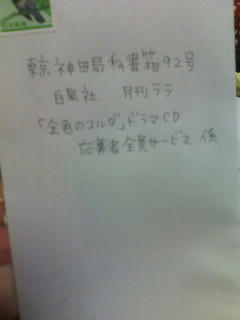 東京神田局私書箱92号
白泉社 月刊ララ
「金色のコルダ」ドラマCD
応募者全員サービス 係